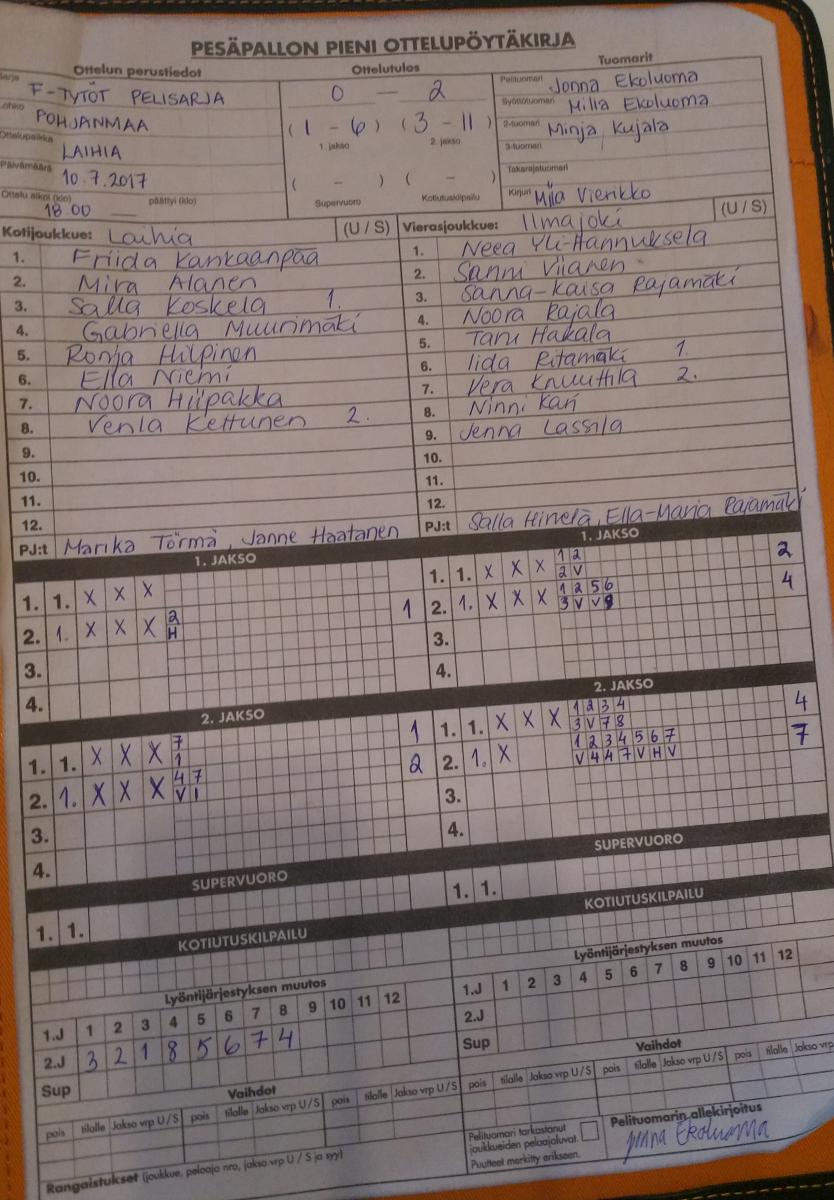 PESÄPALLON PIENI OTTELUPÖYTÄKIRJA
Ottelun perustiedot
Sarja F-TYTÖT PELISARJA
Lohko POHJANMAA
Ottelupaikka LAIHIA
Päivämäärä 10.7.2017
Ottelu alkoi (klo) 18.00 päättyi (klo)
Ottelutulos
0 - 2
(1 - 6) (3 - 11)
1. jakso 2. jakso
( - ) ( - )
Supervuoro Kotiutuskilpailu
Tuomarit
Pelituomari Jonna Ekoluoma
Syöttötuomari Milla Ekoluoma
2-tuomari Minja Kujala
3-tuomari
Takarajatuomari
Kirjuri Miia Vierikko
Kotijoukkue: Laihia (U / S)
1. Friida Kankaanpää
2. Mira Alanen
3. Salla Koskela 1.
4. Gabriella Muurimäki
5. Ronja Hilpinen
6. Ella Niemi
7. Noora Hiipakka
8. Venla Kettunen 2.
9.
10.
11.
12.
PJ:t Marika Törmä, Janne Haatanen
Vierasjoukkue: Ilmajoki (U / S)
1. Neea Yli-Hannuksela
2. Sanni Viianen
3. Sanna-Kaisa Rajamäki
4. Noora Rajala
5. Taru Hakala
6. Iida Ritamäki 1.
7. Vera Knuuttila 2.
8. Ninni Kari
9. Jenna Lassila
10.
11.
12.
PJ:t Salla Hirvelä, Ella-Maria Rajamäki
1. JAKSO
1. 1. X X X
2. 1. X X X 2 1
H
3.
4.
1. JAKSO
1. 1. X X X 1 2 2
2 V
2. 1. X X X 1 2 5 6 4
3 V V 9
3.
4.
2. JAKSO
1. 1. X X X 7 1
1
2. 1. X X X 4 7 2
V 1
3.
4.
2. JAKSO
1. 1. X X X 1 2 3 4 4
3 V 7 8
2. 1. X 1 2 3 4 5 6 7 7
V 4 4 7 V H V
3.
4.
SUPERVUORO
1. 1.
SUPERVUORO
1. 1.
KOTIUTUSKILPAILU
KOTIUTUSKILPAILU
Lyöntijärjestyksen muutos
1.J 1 2 3 4 5 6 7 8 9 10 11 12
2.J 3 2 1 8 5 6 7 4
Sup
Lyöntijärjestyksen muutos
1.J 1 2 3 4 5 6 7 8 9 10 11 12
2.J
Sup
Vaihdot
pois tilalle Jakso vrp U / S pois tilalle Jakso vrp U / S pois tilalle Jakso vrp U / S
Vaihdot
pois tilalle Jakso vrp U / S pois tilalle Jakso vrp U / S pois tilalle Jakso vrp
Rangaistukset (joukkue, pelaaja nro, jakso vrp U / S ja syy)
Pelituomari tarkastanut
joukkueiden pelaajaluvat.
Puutteet merkitty erikseen.
Pelituomarin allekirjoitus
Jonna Ekoluoma